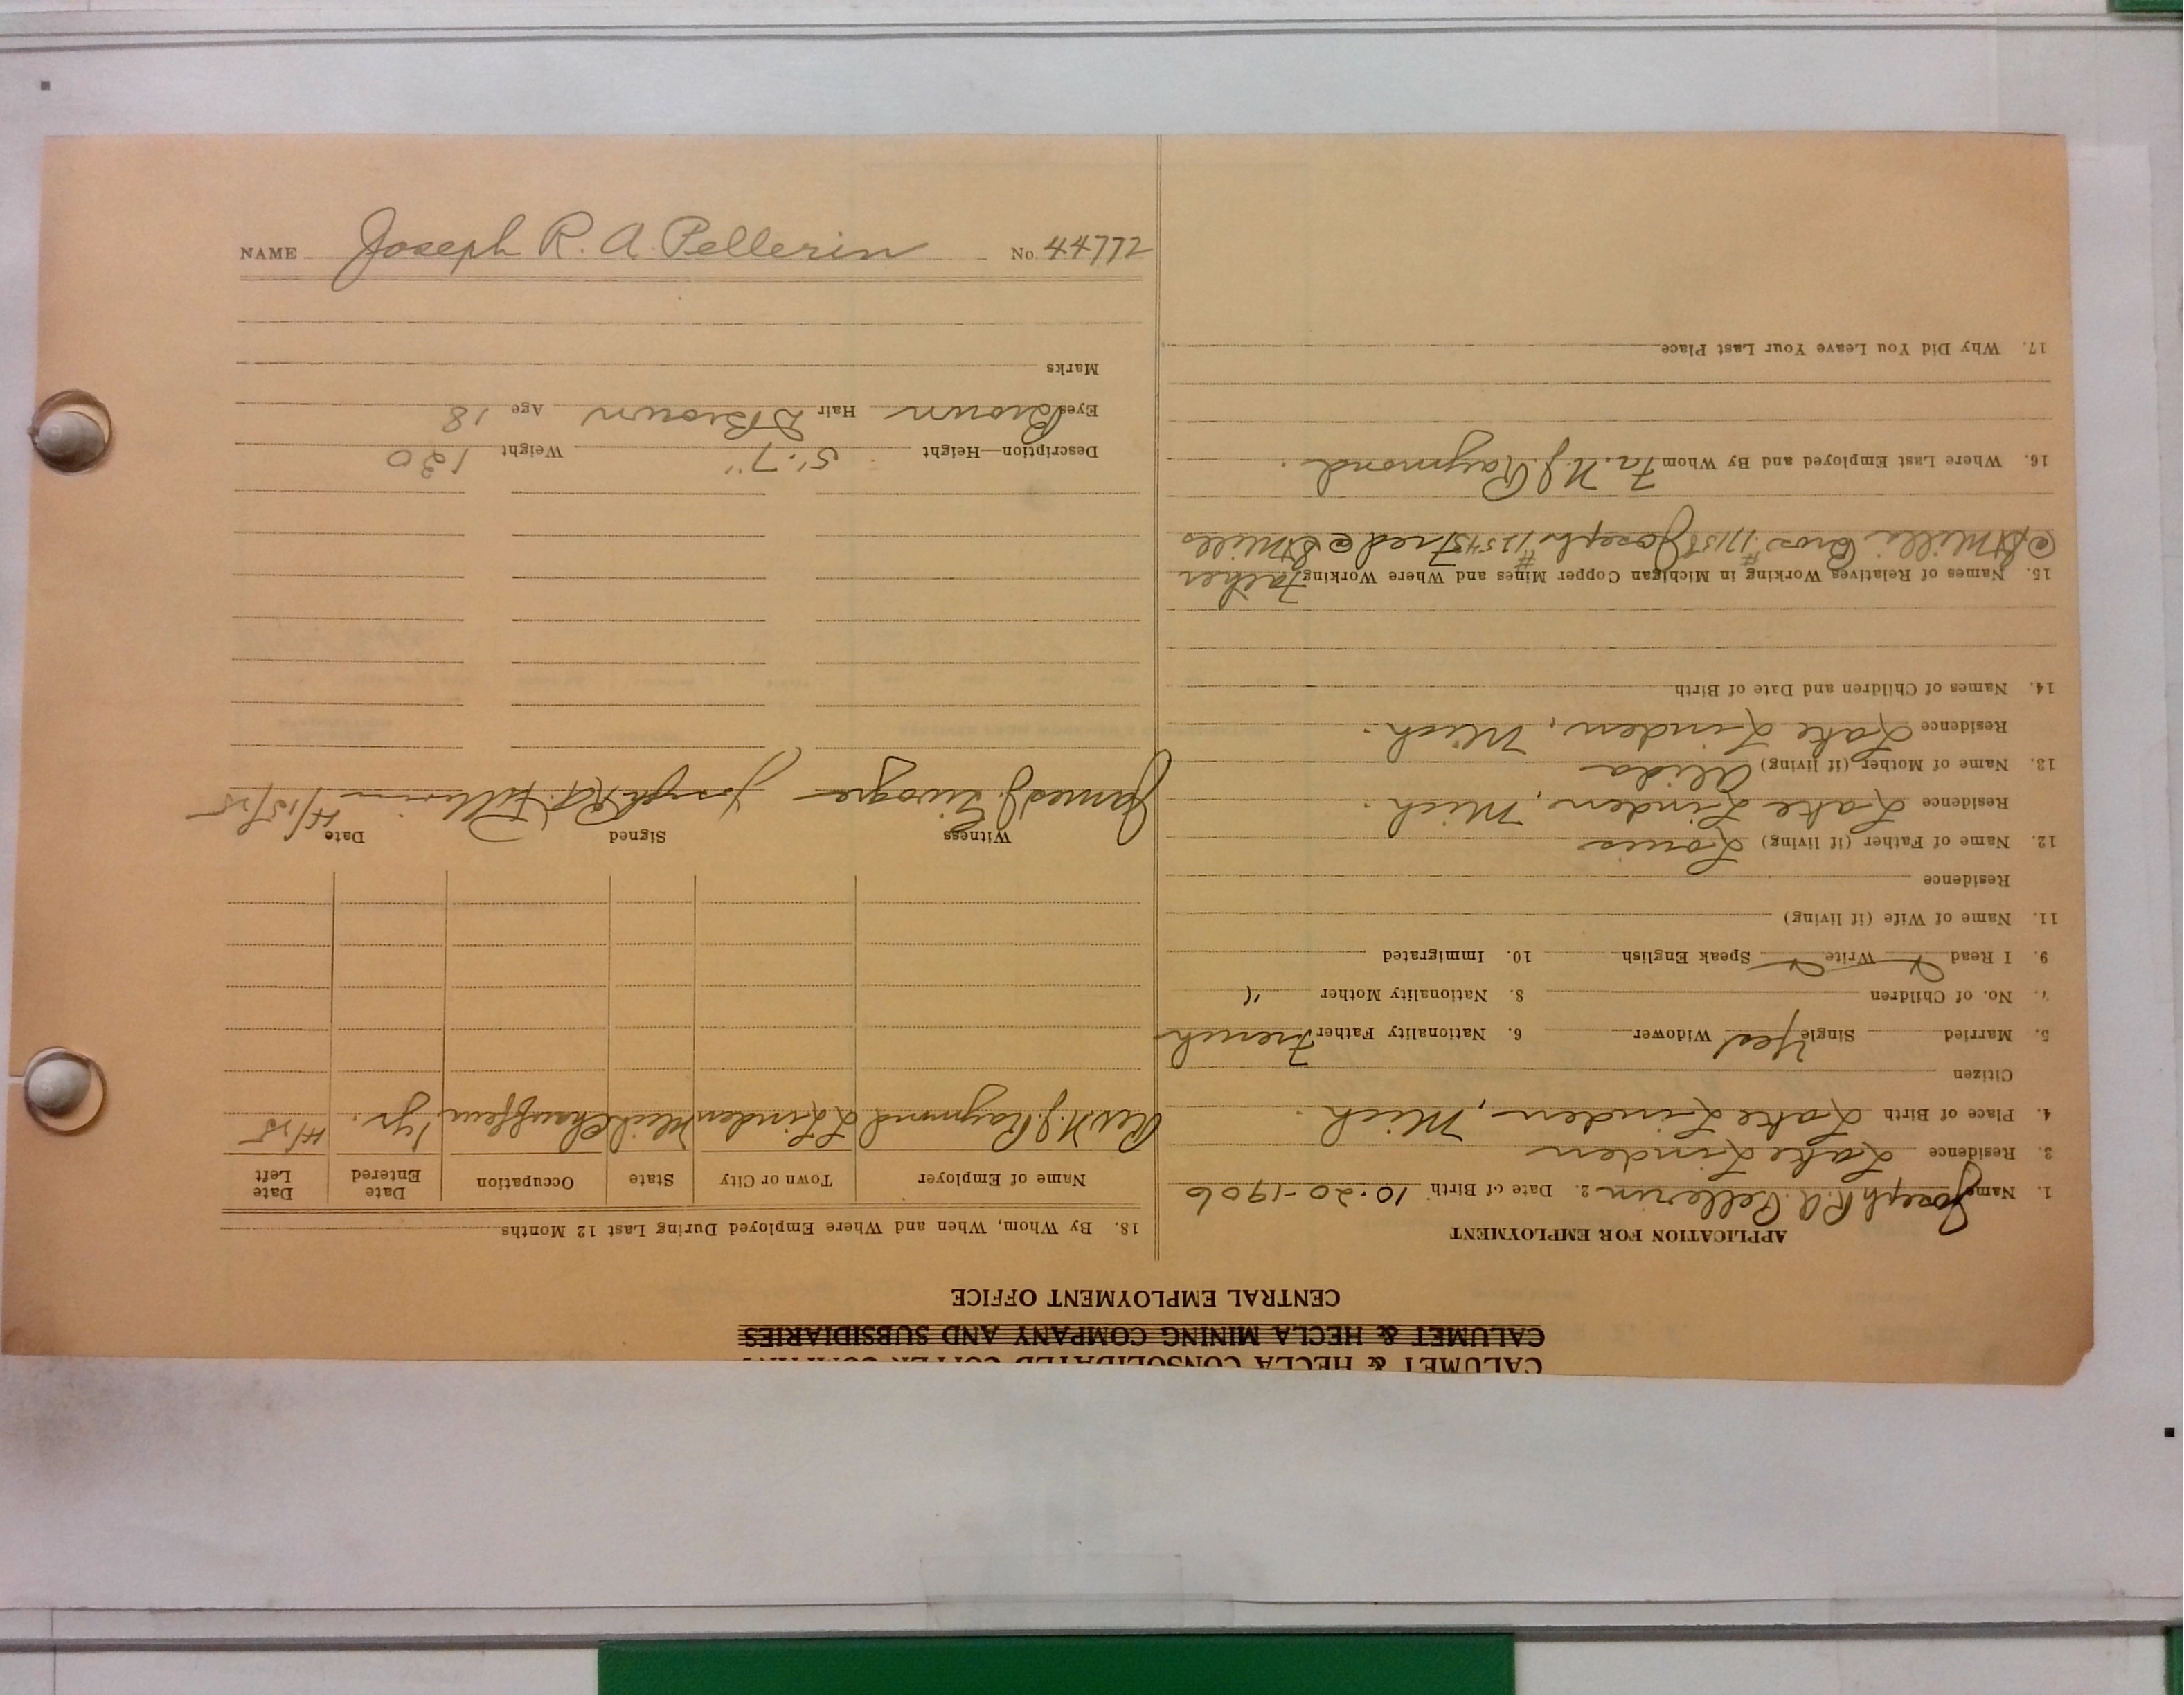 NAME Joseph R. A. Pellerin No. 44772
CALUMET & HECLA CONSOLIDATED COPPER COMPANY
CALUMET & HECLA MINING COMPANY AND SUBSIDIARIES
CENTRAL EMPLOYMENT OFFICE
APPLICATION FOR EMPLOYMENT
1. Name Joseph R.A. Pellerin 2. Date of Birth 10-20-1906
3. Residence Lake Linden
4. Place of Birth Lake Linden, Mich.
Citizen
5. Married Single Yes Widower 6. Nationality Father French
7. No. of Children 8. Nationality Mother "
9. I Read Write Speak English 10. Immigrated
11. Name of Wife (if living)
Residence
12. Name of Father (if living) Louis
Residence Lake Linden, Mich.
13. Name of Mother (if living) Alida
Residence Lake Linden, Mich.
14. Names of Children and Date of Birth
15. Names of Relatives Working in Michigan Copper Mines and Where Working Father
@ Mills Bros. #17158 Joseph #12545 Fred @ Mills
16. Where Last Employed and By Whom Fa. N.J. Raymond.
17. Why Did You Leave Your Last Place
18. By Whom, When and Where Employed During Last 12 Months
Name of Employer Town or City State Occupation Date Entered Date Left
Rev. N.J. Raymond L Linden Mich Chauffeur 1 yr. 4/25
Witness Signed Date
James J. Joseph R.A. Pellerin 4/15/25
Description—Height 5'-7" Weight 130
Eyes Brown Hair D Brown Age 18
Marks